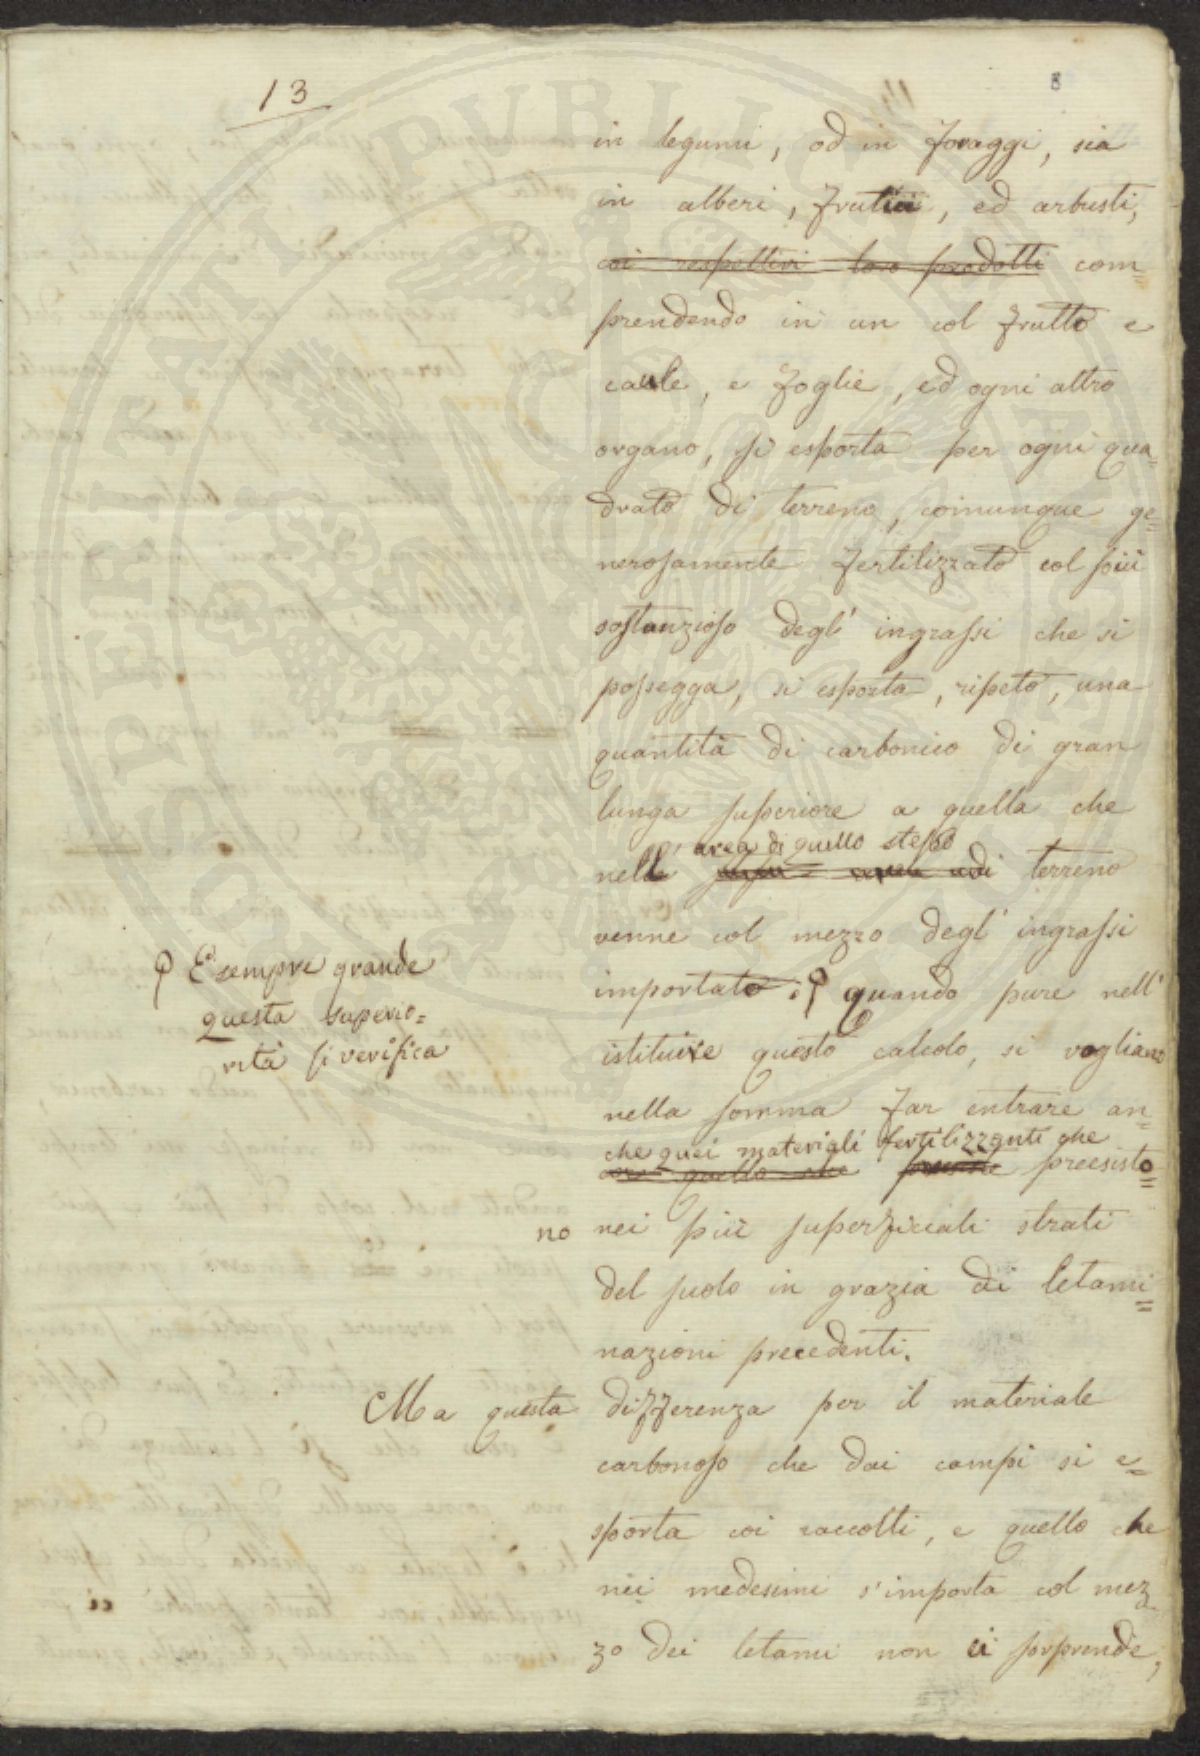 13
8
in legumi, od in foraggi, sia
in alberi, frutici, ed arbusti,
coi respettivi loro prodotti com=
prendendo in un col frutto e
caule, e foglie, ed ogni altro
organo, si esporta per ogni qua=
drato di terreno, comunque ge=
nerosamente fertilizzato col più
sostanzioso degl' ingrassi che si
possegga, si esporta, ripeto, una
quantità di carbonico di gran
lunga superiore a quella che
area di quello stesso
nell' terreno
venne col mezzo degl' ingrassi
importato quando pure nell'
E sempre grande
questa superio=
rità si verifica
istituire questo calcolo, si vogliano
nella somma far entrare an=
che quei materiali fertilizzanti che
preesisto=
no nei più superficiali strati
del suolo in grazia di letami=
nazioni precedenti.
Ma questa differenza per il materiale
carbonoso che dai campi si e=
sporta coi raccolti, e quello che
nei medesimi s'importa col mez
zo dei letami non ci sorprende,